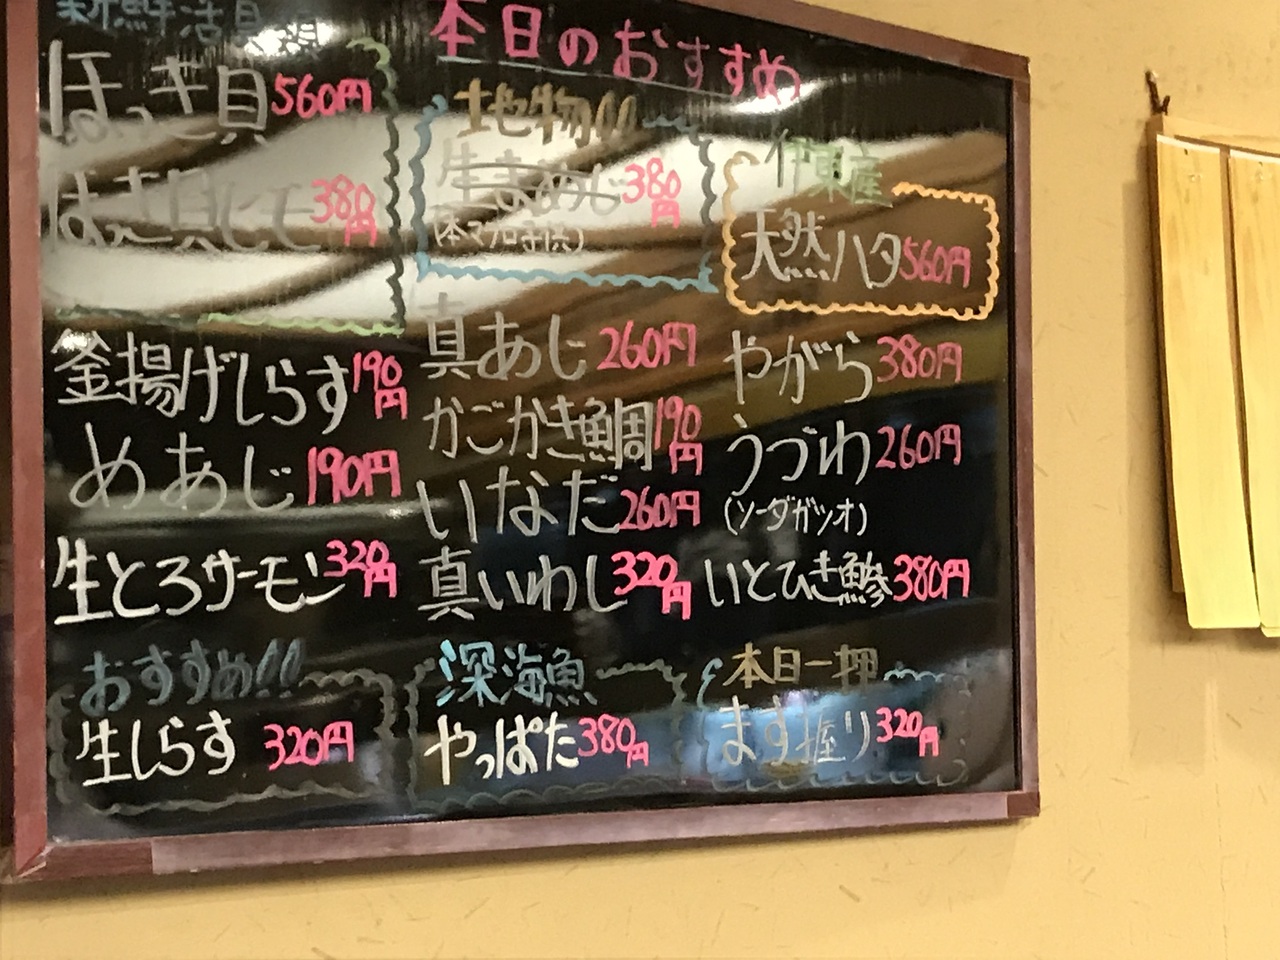 本日のおすすめ
新鮮活貝
ほっき貝 560円
380円
釜揚げしらす 190円
めあじ 190円
生とろサーモン 320円
おすすめ!!
生しらす 320円
地物!!
380円
真あじ 260円
かごかき鯛 190円
いなだ 260円
真いわし 320円
深海魚
やっぱた 380円
伊東産
天然ハタ 560円
やがら 380円
うづわ 260円
(ソーダガツオ)
いとひき鰺 380円
本日一押
ます握り 320円